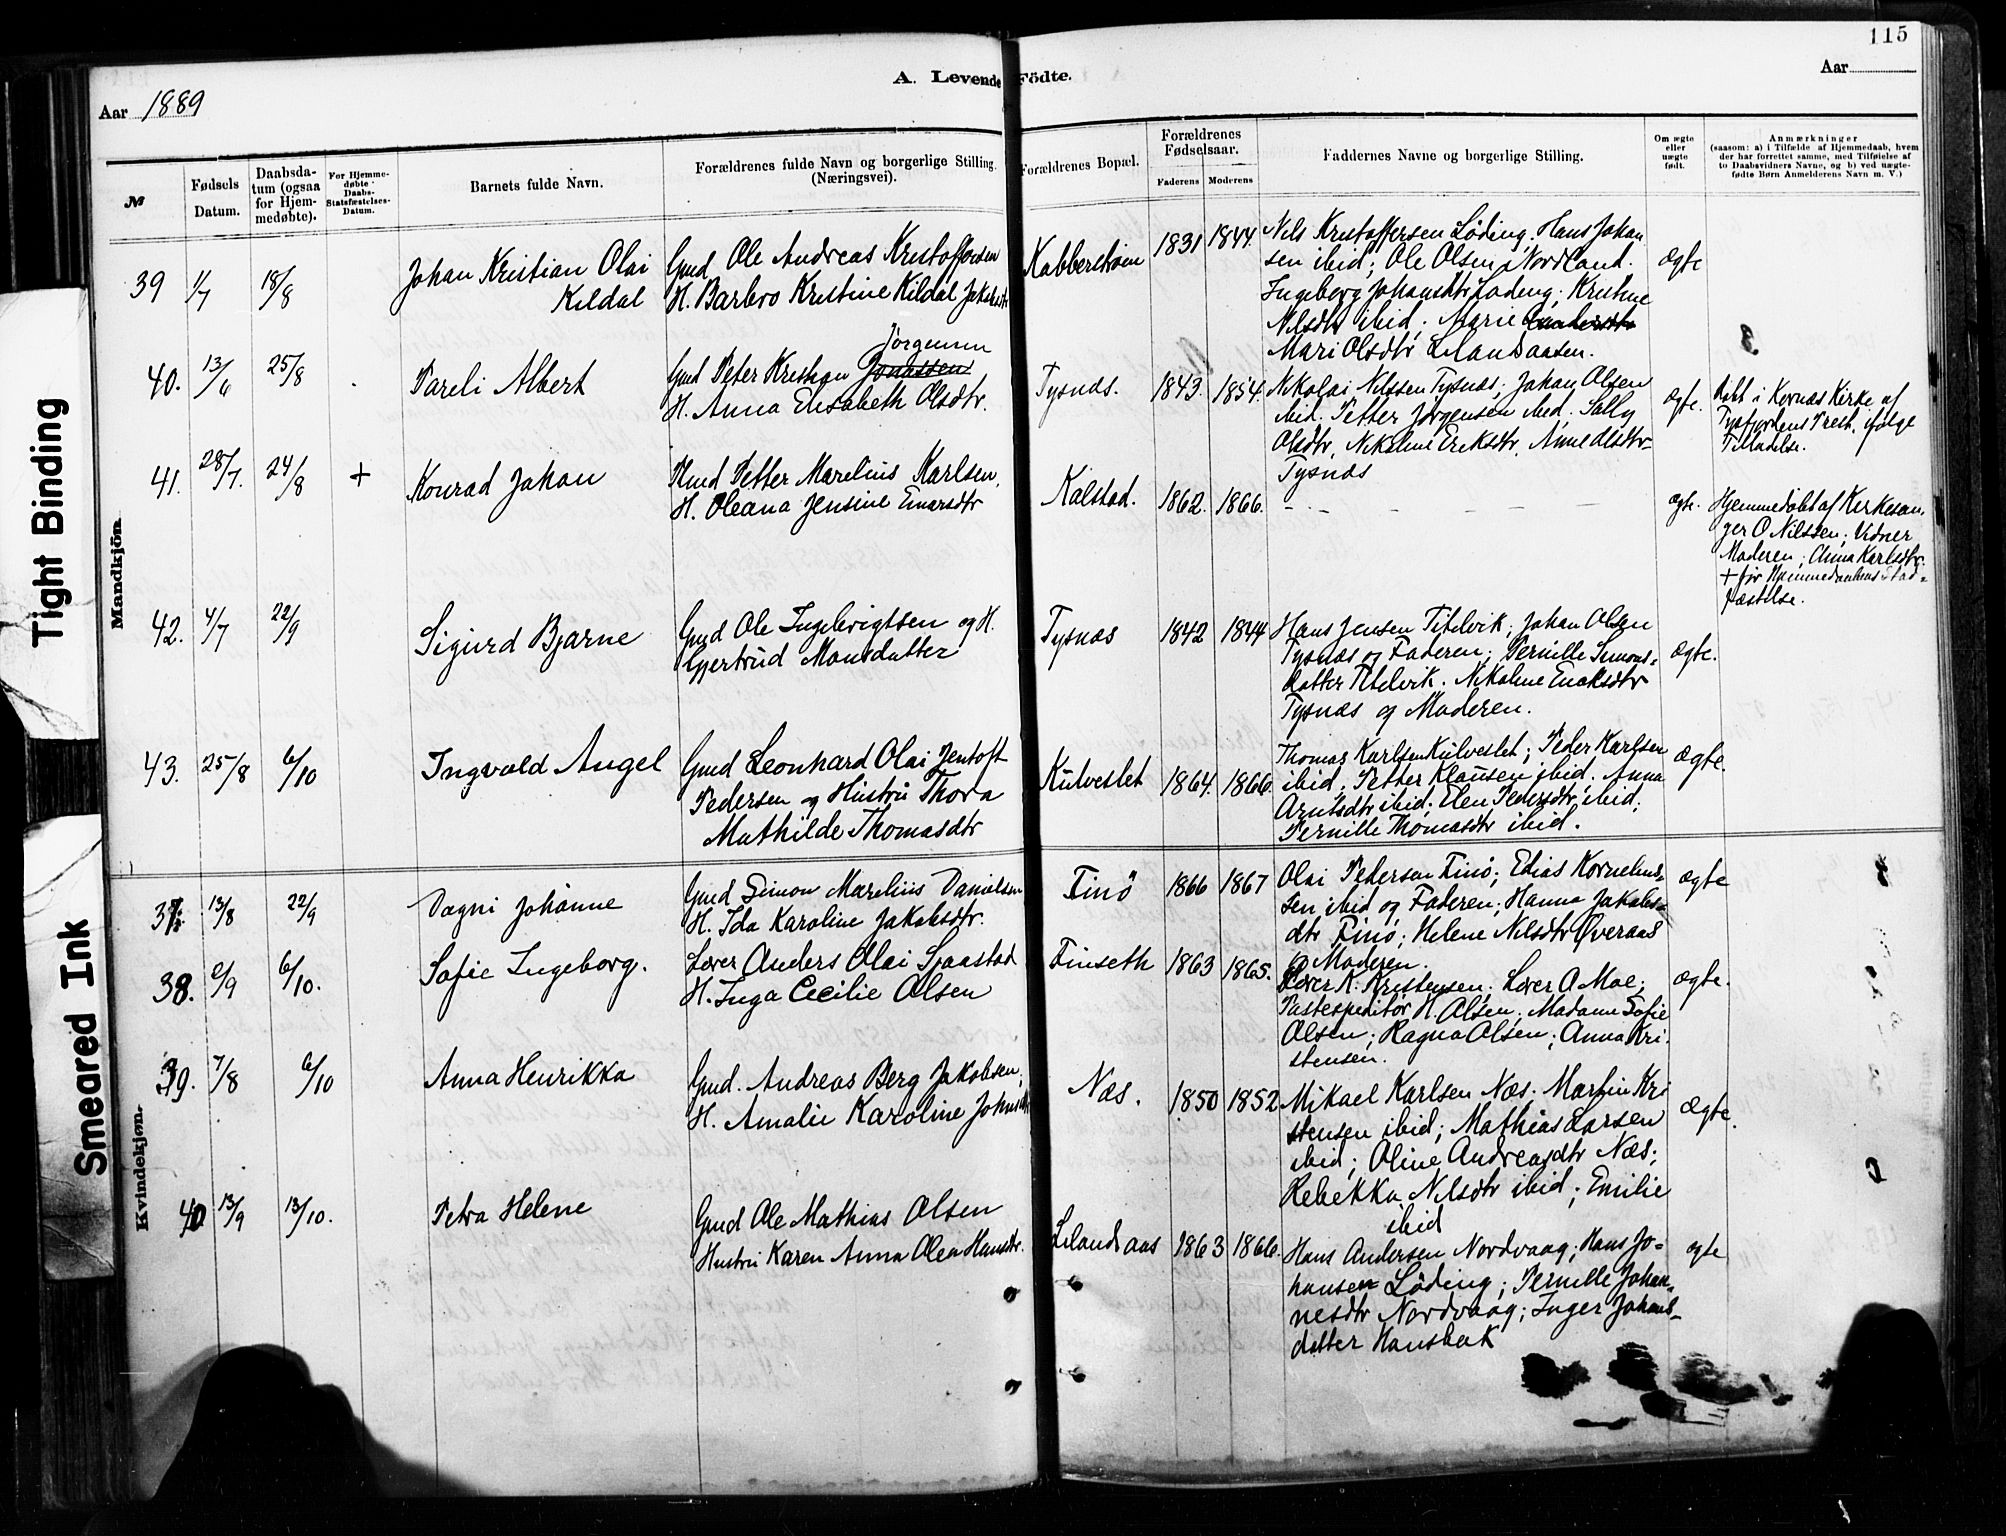 115
A. Levende Födte.
Aar 1889
Aar
№
Fødsels Datum.
Daabsda-
tum (ogsaa
for Hjem-
medøbte).
For Hjemme-
døbte
Daabs-
Stadfæstelses-
Datum.
Barnets fulde Navn.
Forældrenes fulde Navn og borgerlige Stilling.
(Næringsvei).
Forældrenes Bopæl.
Forældrenes
Fødselsaar.
Faderens
Moderens
Faddernes Navne og borgerlige Stilling.
Om ægte
eller
uægte
født.
Anmærkninger
(saasom: a) i Tilfælde af Hjemmedaab, hvem
der har forrettet samme, med Tilføielse af
to Daabsvidners Navne, og b) ved uægte-
fødte Børn Anmelderens Navn m. V.)
Tight Binding
Smeared Ink
Mandkjön.
39 1/7 18/8
Johan Kristian Olai
Kildal
Gmd Ole Andreas Kristoffersen
H. Barbro Kristine Kildal
Kobberstrøm
1831 1844.
Nils Kristoffersen Løding, Hans Johan
sen ibid; Ole Olsen Nordland.
Ingeborg Løding; Kristine
Nilsdtr ibid; Marie
Mari Olsdtr Lilandsaasen.
ægte
40. 13/6 25/8
Pareli Albert
Jørgensen
Gmd Peter Kristian Jonassen
H. Anna Elisabeth Olsdtr.
Tysnæs.
1843. 1854.
Nikolai Nilssen Tysnæs; Johan Olsen
ibid. Petter Jørgensen ibid. Sally
Olsdtr, Nikoline Eriksdtr, Anne Olsdtr
Tysnæs
ægte.
Døbt i Kornæs Kirke af
Tysfjordens Prest, ifølge
Tilladelse.
41. 28/7. 24/8 +
Konrad Johan
Petter Marelius Karlsen,
H. Oleana Jensine Einarsdtr
Kalstad.
1862. 1866.
ægte.
Hjemmedøbt af Kirkesan-
ger O Nilssen; Vidner
Moderen; Anna Karlsdtr.
+ før Hjemmedaabens Stad-
fæstelse.
42. 4/7 22/9
Sigurd Bjarne
Gmd Ole Ingebrigtsen og H.
Gjertrud Monsdatter
Tysnæs
1842 1844
Hans Jensen Titelvik; Johan Olsen
Tysnæs og Faderen; Pernille Simons-
datter Titelvik. Nikoline Eriksdtr
Tysnæs og Moderen.
ægte.
43. 25/8 6/10
Ingvald Angel
Gmd Leonhard Olai Jentoft
Pedersen og Hustru Thora
Mathilde Thomasdtr
Kulveslet
1864. 1866.
Thomas Karlsen Kulveslet; Peder Karlsen
ibid; Petter Klausen ibid. Anna
Arntsdtr ibid; Elen Pedersdtr ibid;
Pernille Thomasdtr ibid.
ægte.
Kvindekjön.
37. 13/8 22/9
Dagni Johanne
Gmd Simon Marelius Danielsen
H. Ida Karoline Jakobsdtr.
Finø
1866 1867
Olai Pedersen Finø; Edias Kornelius-
sen ibid og Faderen; Hanna Jakobs-
dtr Finø; Helene Nilsdtr Øveraas
& Moderen.
ægte
38. 2/9 6/10.
Sofie Ingeborg.
Lærer Anders Olai Sjaastad
H. Inga Cecilie Olsen
Finseth
1863 1865.
Lærer K. Kristensen; Lærer A Moe;
Postexpeditør H. Olsen; Madame Sofie
Olsen; Ragna Olsen; Anna Kri-
stensen.
ægte.
39. 7/8 6/10
Anna Henrikka
Gmd. Andreas Berg Jakobsen,
H. Amalie Karoline
Næs.
1850 1852
Mikael Karlsen Næs. Martin Kri
stensen ibid; Mathias Larsen
ibid; Oline Andreasdtr Næs;
Rebekka Nilsdtr ibid; Emilie
ibid
Ægte.
40 13/9 13/10.
Petra Helene
Gmd Ole Mathias Olsen
Hustru Karen Anna Olea Hansdtr.
Lilandsaas
1863 1866.
Hans Andersen Nordvaag; Hans Jo-
hansen Løding; Pernille Johan-
nesdtr Nordvaag; Inger Johans-
datter Hansbak
ægte